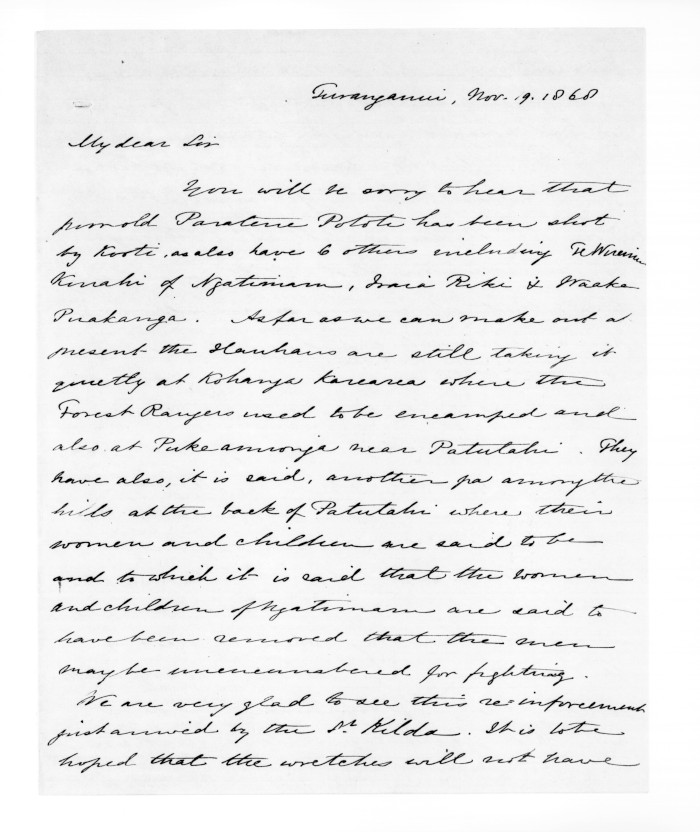 Turanganui, Nov. 19. 1868
My dear Sir
You will be sorry to hear that
poor old Paratene Pototi has been shot
by Kooti, as also have 6 others including Te Wiremu
Kinahi of Ngatimaru, Iraia Riki & Waaka
Puakanga. As far as we can make out at
present the Hauhaus are still taking it
quietly at Kohanga Karearea where the
Forest Rangers used to be encamped and
also at Pukeamionga near Patutahi. They
have also, it is said, another pa among the
hills at the back of Patutahi where their
women and children are said to be
and to which it is said that the women
and children of Ngatimaru are said to
have been removed that the men
may be unencumbered for fighting.
We are very glad to see this reinforcement
just arrived by the St Kilda. It is to be
hoped that the wretches will not have